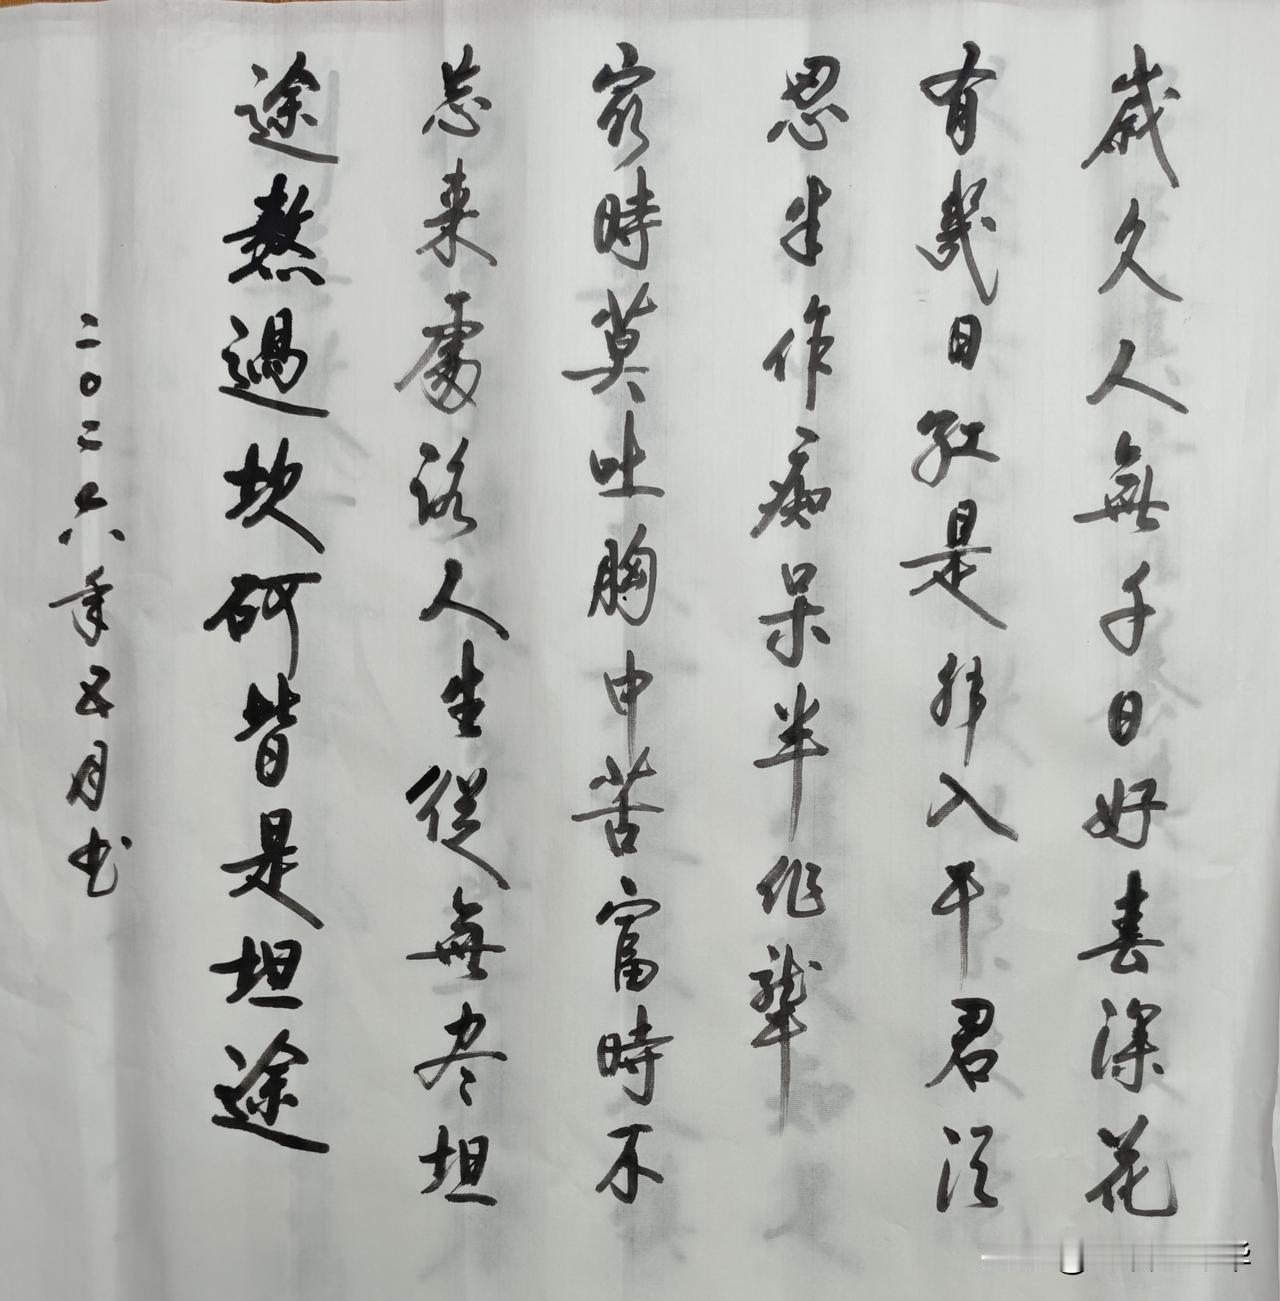 歲久人無千日好春深花
有幾日紅是非入耳君須
忍半作痴呆半作聾
窮時莫吐胸中苦富時不
忘来處路人生從無尽坦
途熬過坎坷皆是坦途
二〇二六年五月书